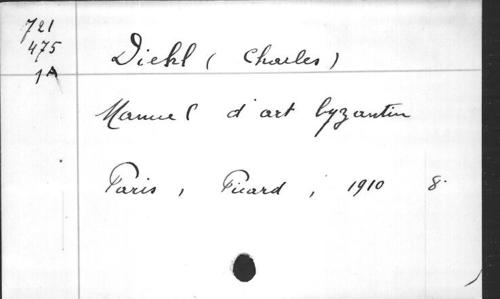 721
475
1A
Diehl (Charles)
Manuel d'art byzantin
Paris, Picard, 1910 8.